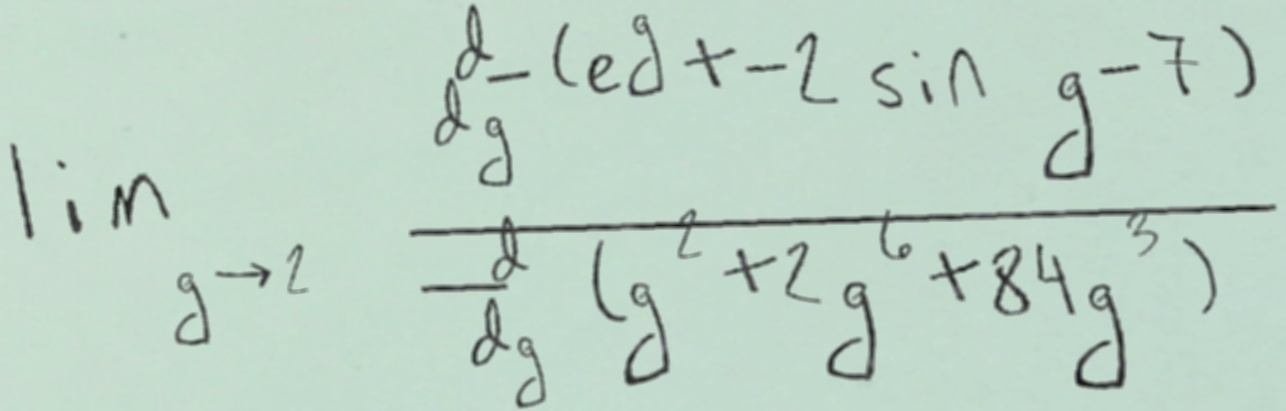 \lim_{g \to 2} \frac{\frac{d}{dg}(e^g + -2 \sin g - 7)}{\frac{d}{dg}(g^2 + 2g^6 + 84g^3)}